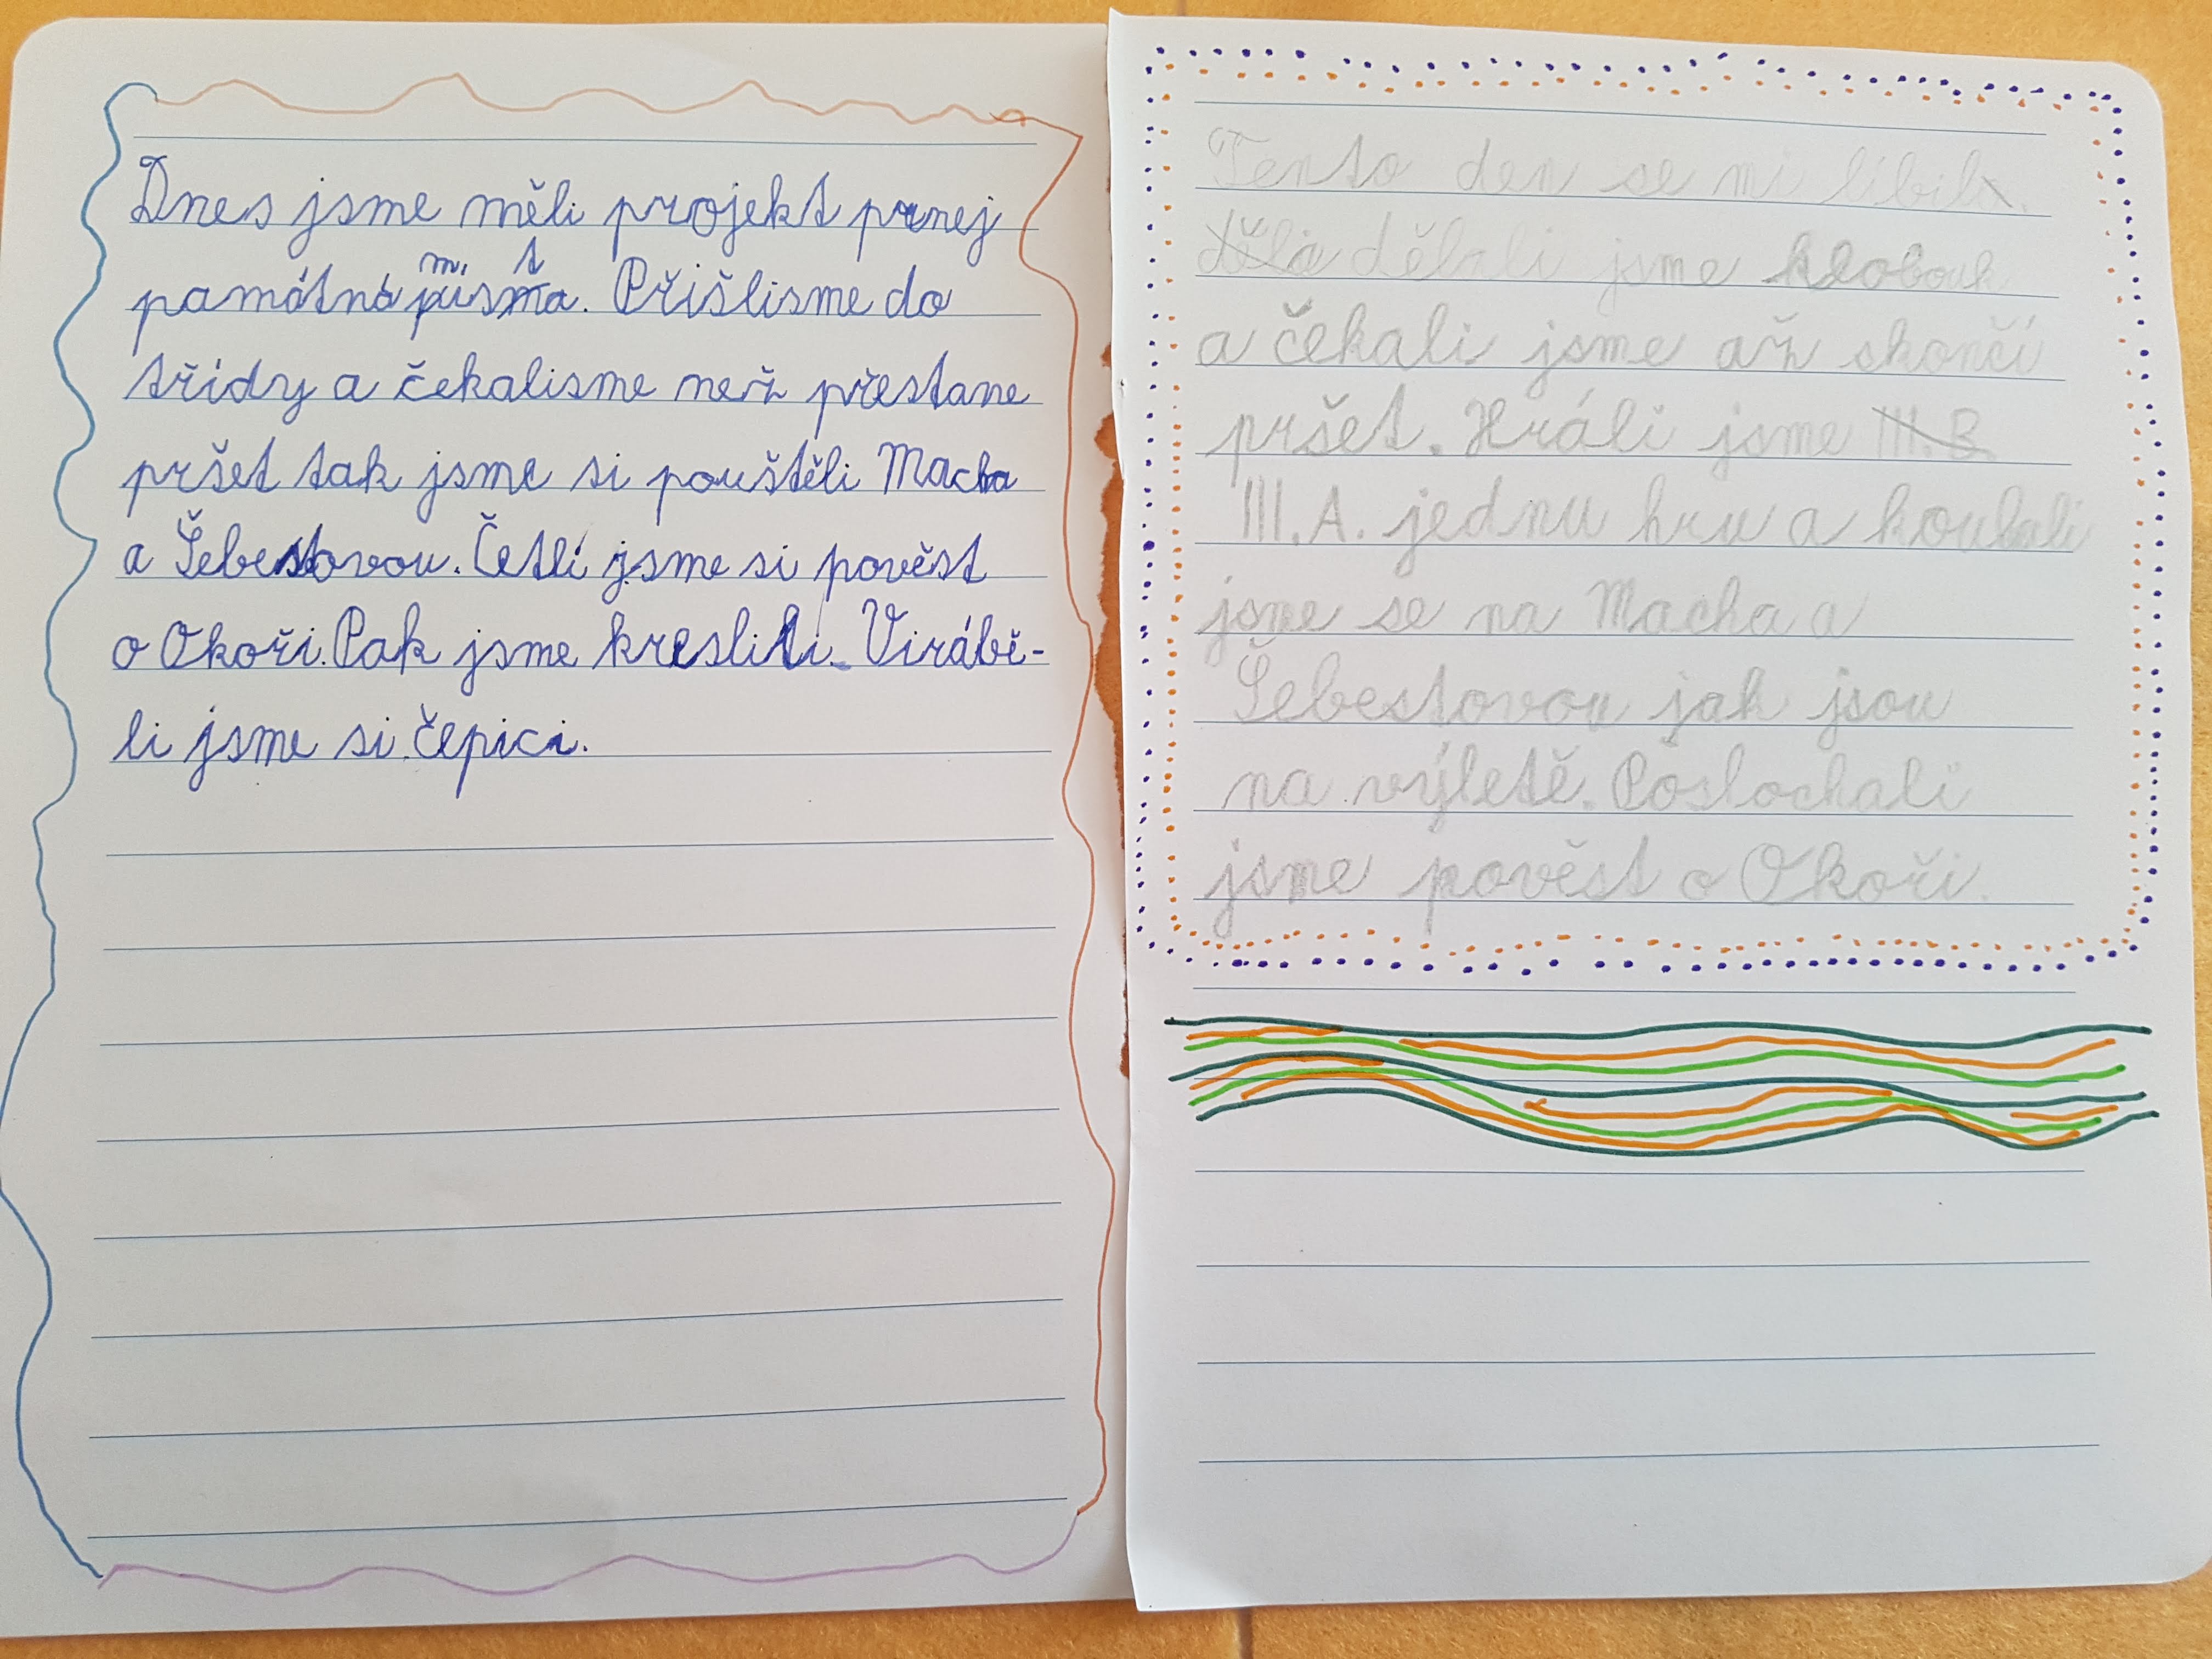 Dnes jsme měli projekt prnej
památná místa. Přišlisme do
třídy a čekalisme než přestane
pršet tak jsme si pouštěli Macha
a Šebestovou. Četli jsme si pověst
o Okoři. Pak jsme kreslili. Virábě-
li jsme si čepici.
Tento den se mi líbil.
děla dělali jsme klobouk
a čekali jsme až skončí
pršet. Hráli jsme III.B.
III.A. jednu hru a koukali
jsme se na Macha a
Šebestovou jak jsou
na výletě. Poslochali
jsme pověst o Okoři.